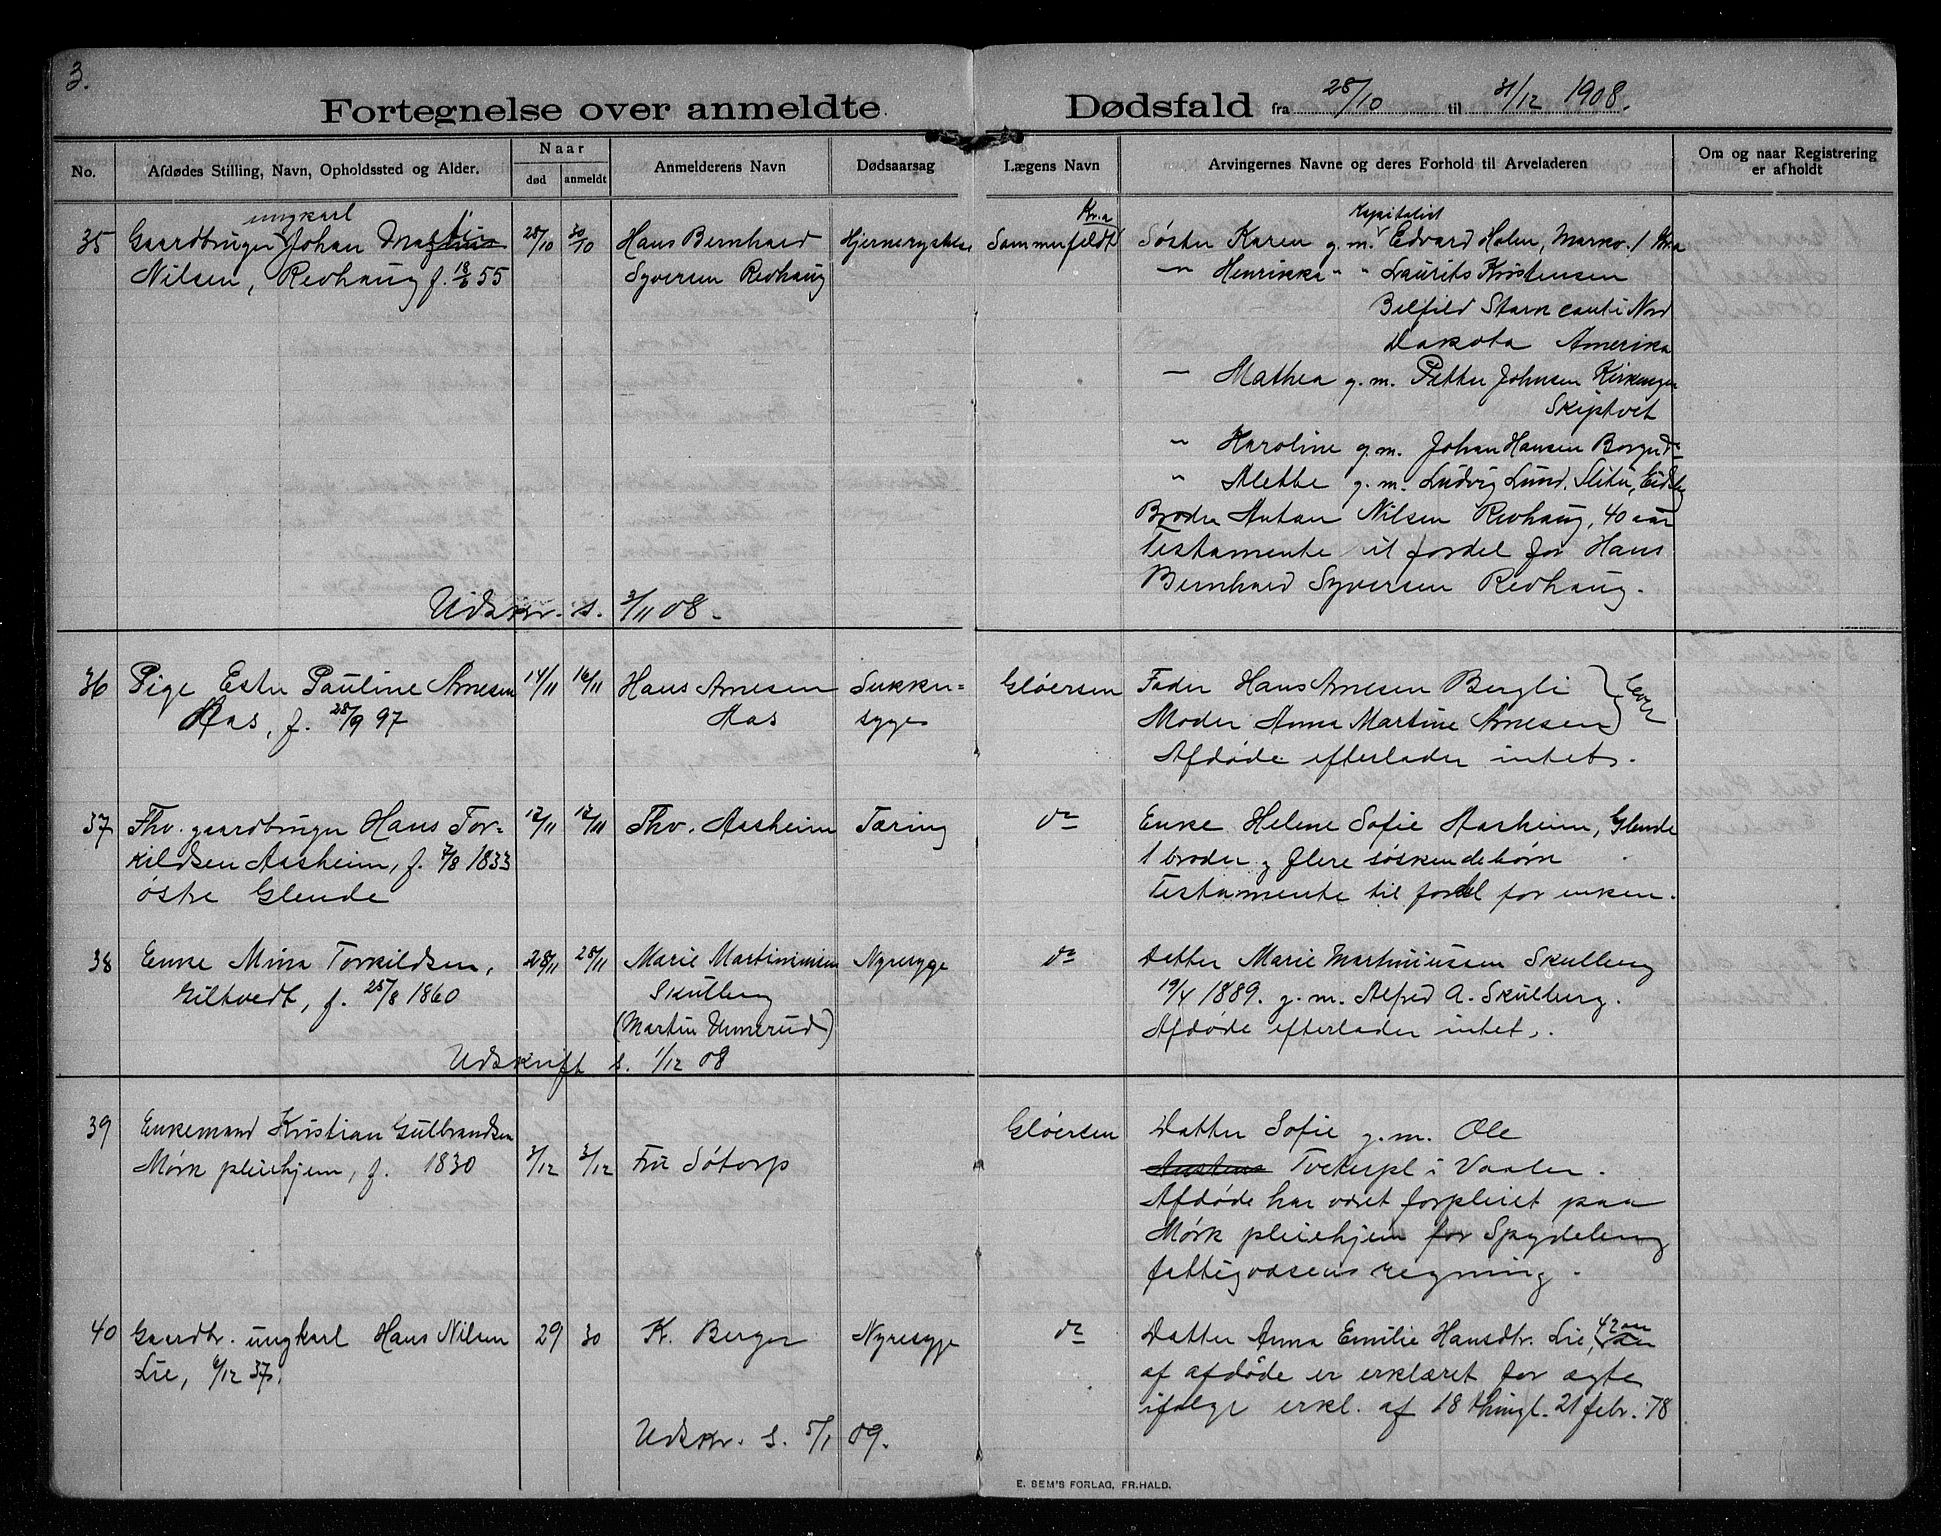 3.
Fortegnelse over anmeldte Dødsfald fra 28/10 til 31/12 1908.
No. Afdødes Stilling, Navn, Opholdssted og Alder. Naar død anmeldt Anmelderens Navn Dødsaarsag Lægens Navn Arvingernes Navne og deres Forhold til Arveladeren Om og naar Registrering er afholdt
ungkarl Kr.a Kapitalist
35 Gaardbruger Johan 28/10 30/10 Hans Bernhard Hjernerystelse Sommerfeldt Søster Karen g.m. Edvard Holm, Markv. 1 Kria
Nilsen, Revhaug f. 55 Syversen Revhaug " Henrikka " " Laurits Kristensen
Belfild Stark canti Nord
Dakota Amerika
— Mathea g.m. Petter Johnsen Kirkenger
Skiptvet
" Karoline g.m. Johan Hansen Borgud
" Alethe g.m. Ludvig Lund, Slitu, Eidsbg
Broder Anton Nilsen Revhaug, 40 aar
Testamente til fordel for Hans
Bernhard Syversen Revhaug.
Udskr. s. 3/11 08.
36 Pige Ester Pauline Arnesen 14/11 16/11 Hans Arnesen Sukker= Gløersen Fader Hans Arnesen Bergli
Aas, f. 28/9 97 Aas syge Moder Anna Martine Arnesen
Afdøde efterlader intet.
37 Fhv. gaardbruger Hans Tor= 12/11 17/11 Fhv. Aasheim Tæring do Enke Helene Sofie Aasheim, Glende
kildsen Aasheim, f. 7/8 1833 1 broder og flere søskendebørn
østre Glende Testamente til fordel for enken.
38 Enke Mina Torkildsen, 28/11 28/11 Marie Martiniusen Nyresyge do Datter Marie Martiniusen Skulberg
Giltvedt, f. 25/8 1860 Skulberg 19/4 1889. g.m. Alfred A. Skulberg.
(Martin Unnerud) Afdøde efterlader intet.
Udskrift s. 1/12 08
39 Enkemand Kristian Gulbrandsen Gløersen Datter Sofie g.m. Ole
Mørk pleiehjem, f. 1830 3/12 3/12 Fru Søtorp i Vaaler.
Afdøde har været forpleiet paa
Mørk pleiehjem for Spydeberg
fattigvæsens regning.
40 Gaardbr. ungkarl Hans Nilsen 29 30 K. Berger Nyresyge do Datter Anna Emilie Hansdtr. Lie, 42 aar
Lie, 6/12 37. af afdøde er erklæret for ægte
ifølge erkl. af 18 thingl. 21 febr. 78
Udskr. s. 5/1 09.
E. SEM'S FORLAG, FR.HALD.